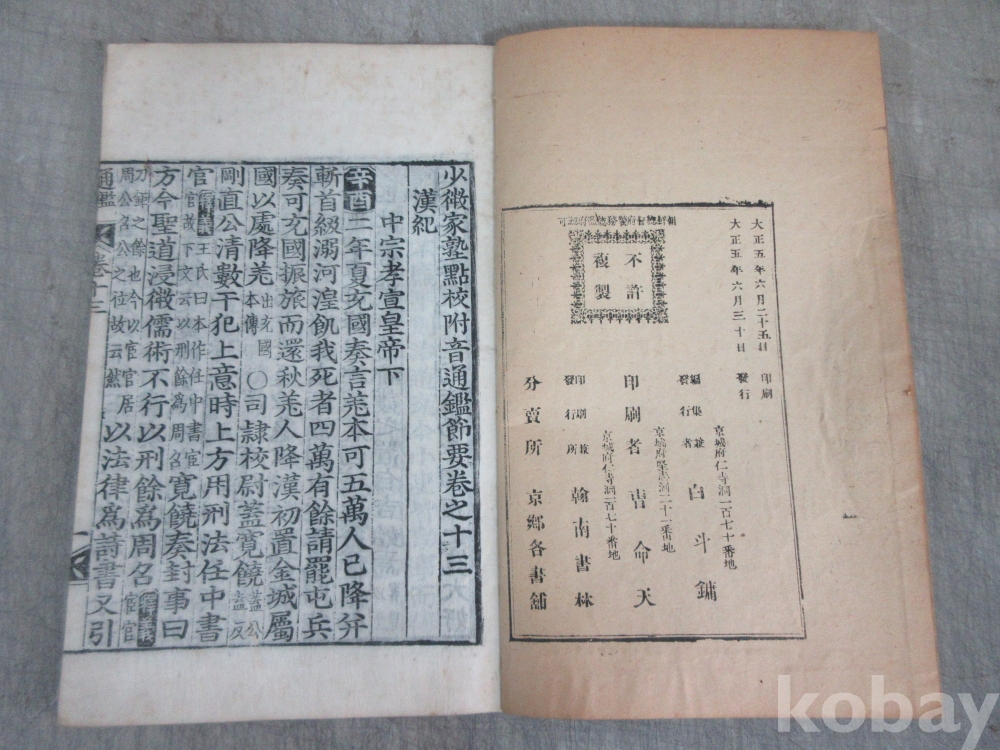 朝鮮總督府警務總監府認可
不許
複製
大正五年六月二十五日 印刷
大正五年六月三十日 發行
京城府仁寺洞一百七十番地
編集兼
發行者 白斗鏞
印刷者 吉命天
京城府仁寺洞一百七十番地
印刷兼
發行所 翰南書林
分賣所 京鄉各書舖
少微家塾點校附音通鑑節要卷之十三
漢紀
中宗孝宣皇帝下
辛酉二年夏充國奏言羌本可五萬人已降幷
斬首級溺河湟飢我死者四萬有餘請罷屯兵
奏可充國振旅而還秋羌人降漢初置金城屬
國以處降羌出充國本傳○司隸校尉蓋寬饒蓋公反
剛直公清數干犯上意時上方用刑法任中書
官釋義王氏曰本作任中書宦官故下文云以刑餘爲周召寬饒奏封事曰
方今聖道浸微儒術不行以刑餘爲周召釋義宦官
刀鋸之餘也今以宦官居周公召公之位故云然以法律爲詩書又引
通鑑 卷十三
kobay